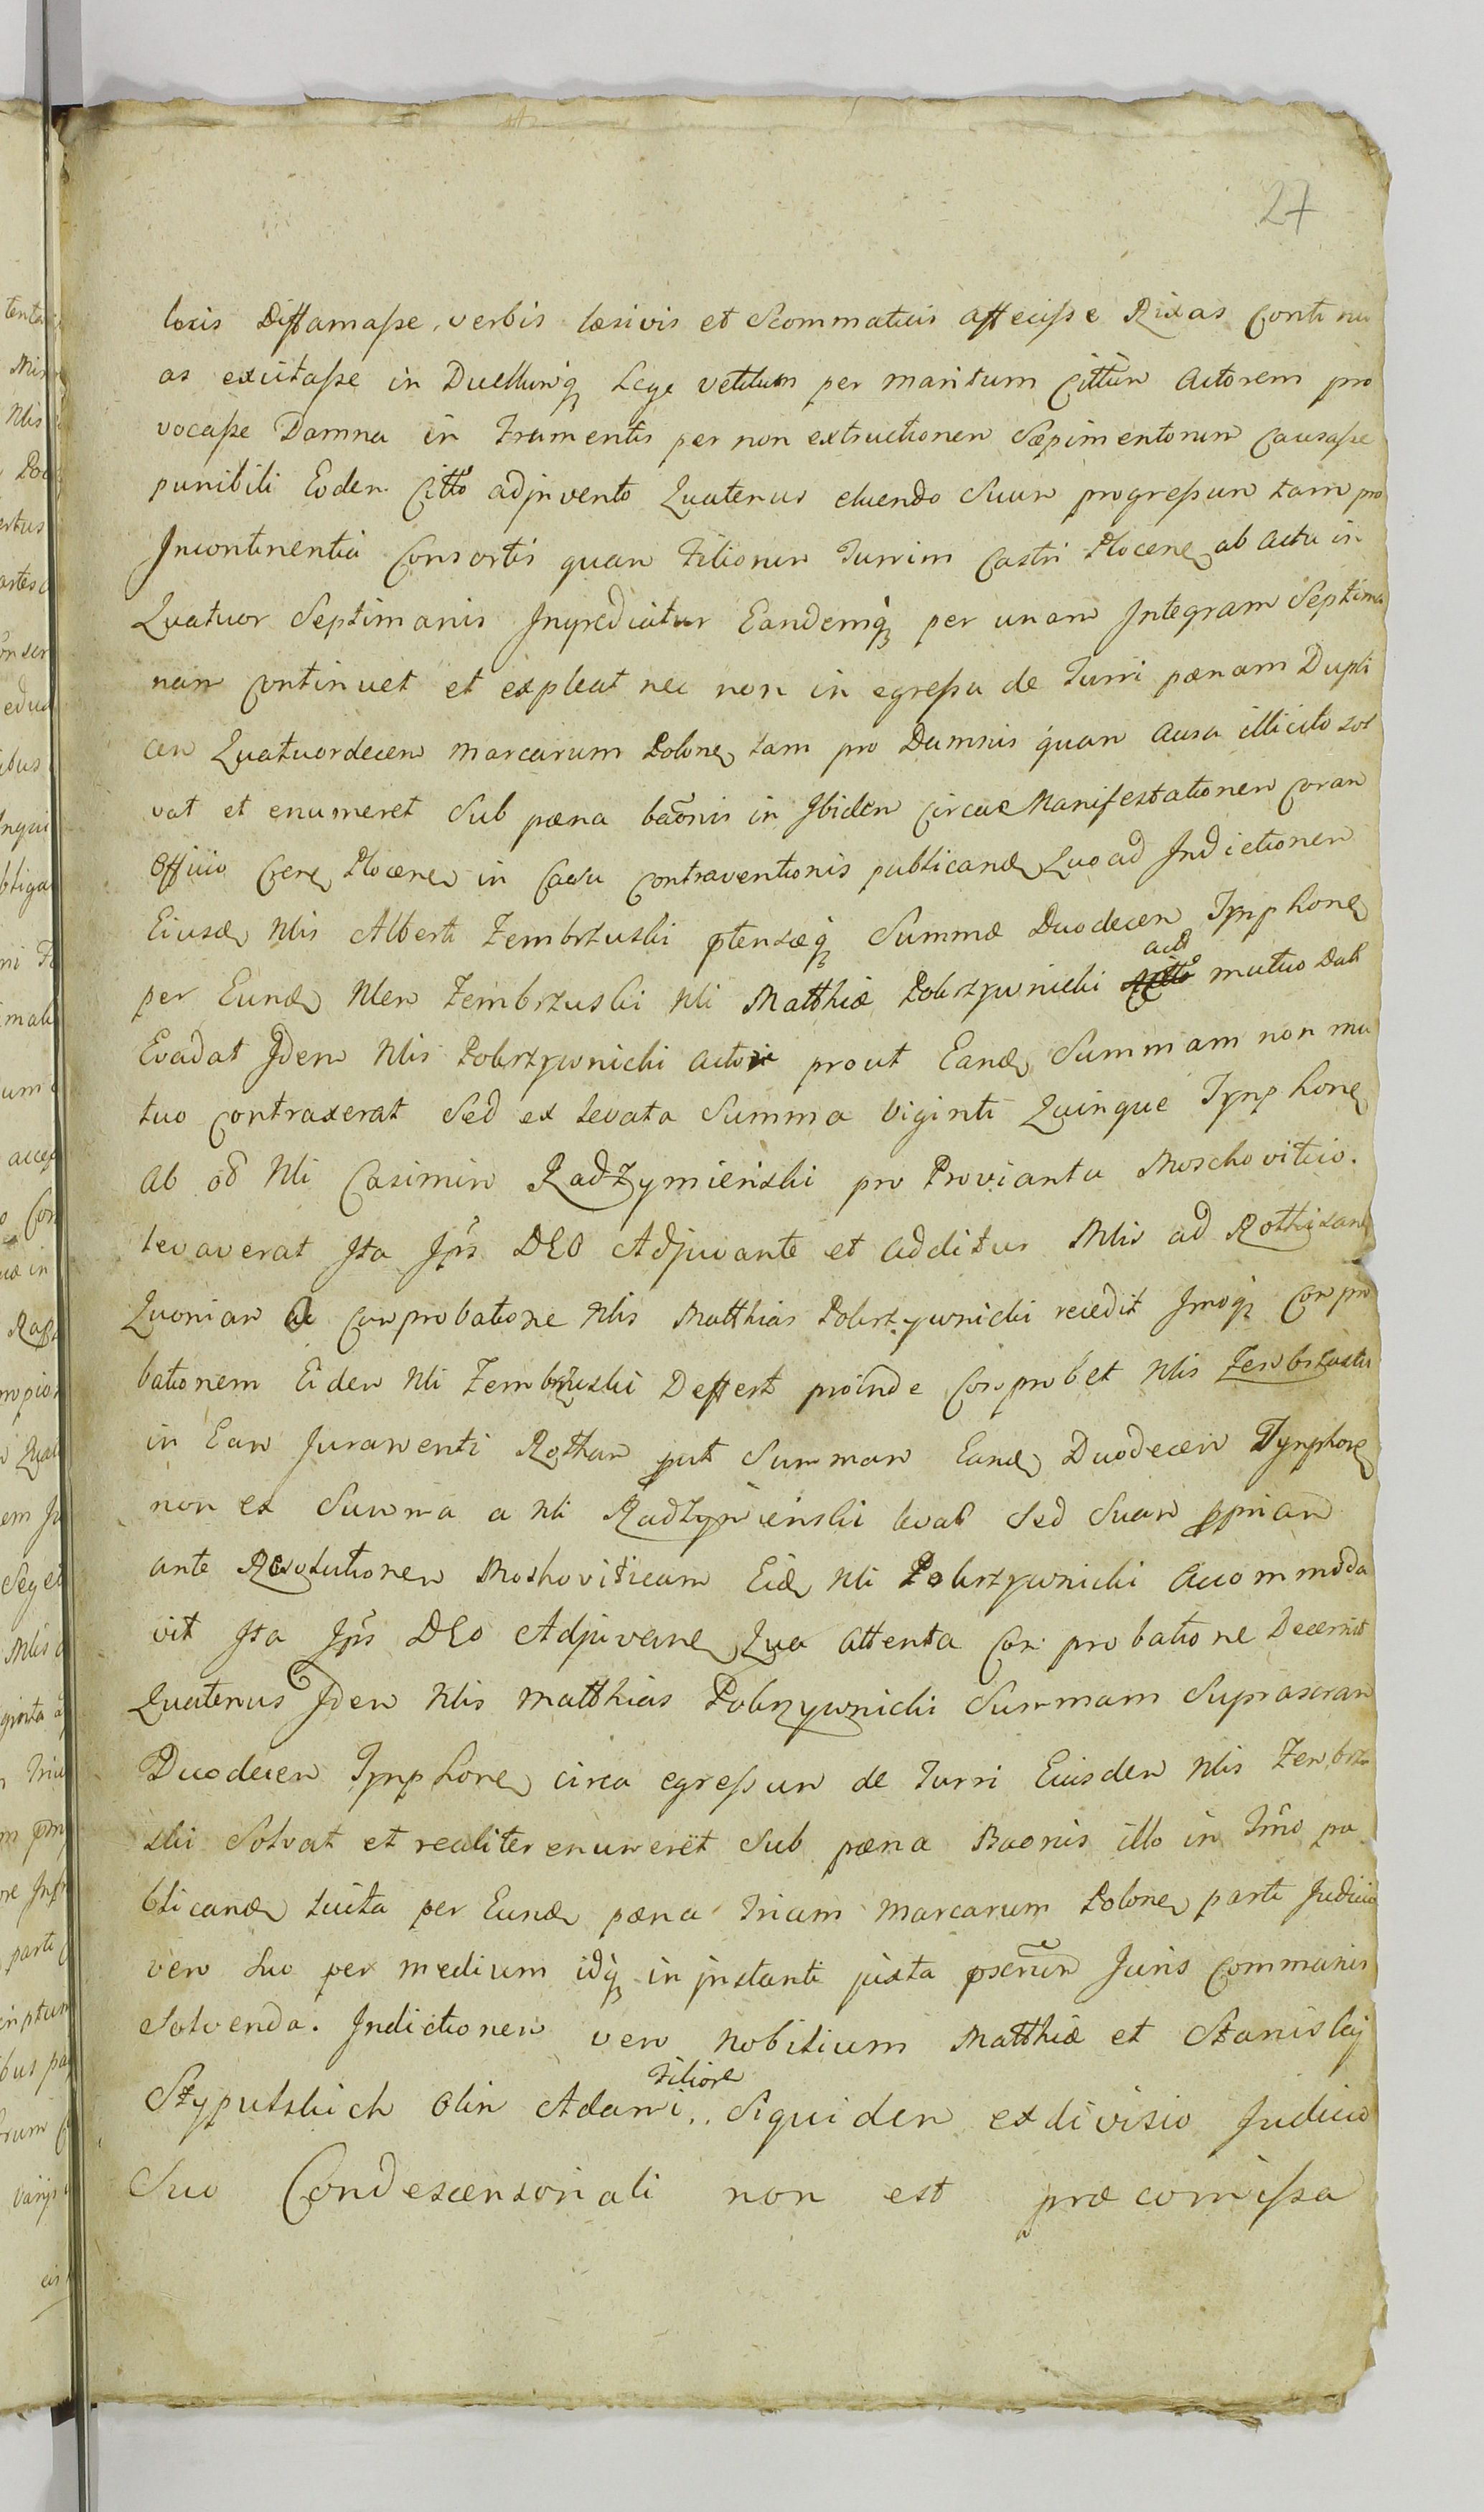 27
locis Diffamaſse, verbis læsivis et Scommaticis affeciſse Rixas Continu
as excitaſse in Duellumq Lege vetitum per maritum Cittum Actorem pro
vocaſse Damna in Frumentis per non extructionem Sæpimentorum Causaſse
punibili Eodem Citto adjnvento Quatenus eluendo Suum progreſsum tam pro
Jncontinentia Consortis quam Filiorum Turrim Castri Plocen ab actu in
Quatuor Septimanis Jngrediatur Eandemq per unam Jntegram Septima
nam Continuet et expleat nec non in egreſsu de Turri pænam Dupli
cem Quatuordecem marcarum Polone tam pro Damnis quam Ausu illicito sol
vat et enumeret Sub pæna baonis in Jbidem Circa Manifestationem Coram
Officio Cren Plocen in Casu Contraventionis publicand Quoad Jndictionem
Eiusd Nlis Alberti Zembrzuski ptensæq Summæ Duodecem Tynphone
per Eund Nlem Zembrzuski Nli Matthiæ Pobrzywnicki act mutuo Dat
Evadat Jdem Nlis Pobrzywnicki actor prout Eand Summam non mu
tuo Contraxerat Sed ex levata Summa Viginti Quinque Tynphone
Ab od Nli Casimiro Radzymienski pro Proviantu Moschovitico.
levaverat Jta Jprs DEO Adjuvante et additur Nlis ad Rotthizand
Quoniam a Comprobatione Nlis Matthias Pobrzywnicki recedit Jmoq Compro
bationem Eidem Nli Zembrzuski Deffert proinde Comprobet Nlis Zembrzuski
in Eam Juramenti Rotham put Summam Eand Duodecem Tynphone
non ex Summa a Nli Radzymienski levat Sed Suam ppriam
ante Revolutionem Moskoviticam Eid Nli Pobrzywnicki Accommoda
vit Jta Jprs DEO Adjuvane Qua attenta Comprobatione Decernit
Quatenus Jdem Nlis Matthias Pobrzywnicki Summam Suprascram
Duodecem Tynphone circa egreſsum de Turri Eiusdem Nlis Zembrzu
ski Solvat et realiter enumeret Sub pæna Baonis illo in Tmno pu
blicand Luita per Eund pæna Trium Marcarum Polone parti Judicio
vero Suo per medium idq in jnstanti juxta pscrum Juris Communis
Solvenda. Jndictionem vero Nobilium Matthiæ et Stanislaj
Stypulskich Olim Adami Filiore Siquidem ex divisio Judicio
Suo Condescensoriali non est præcomiſsa